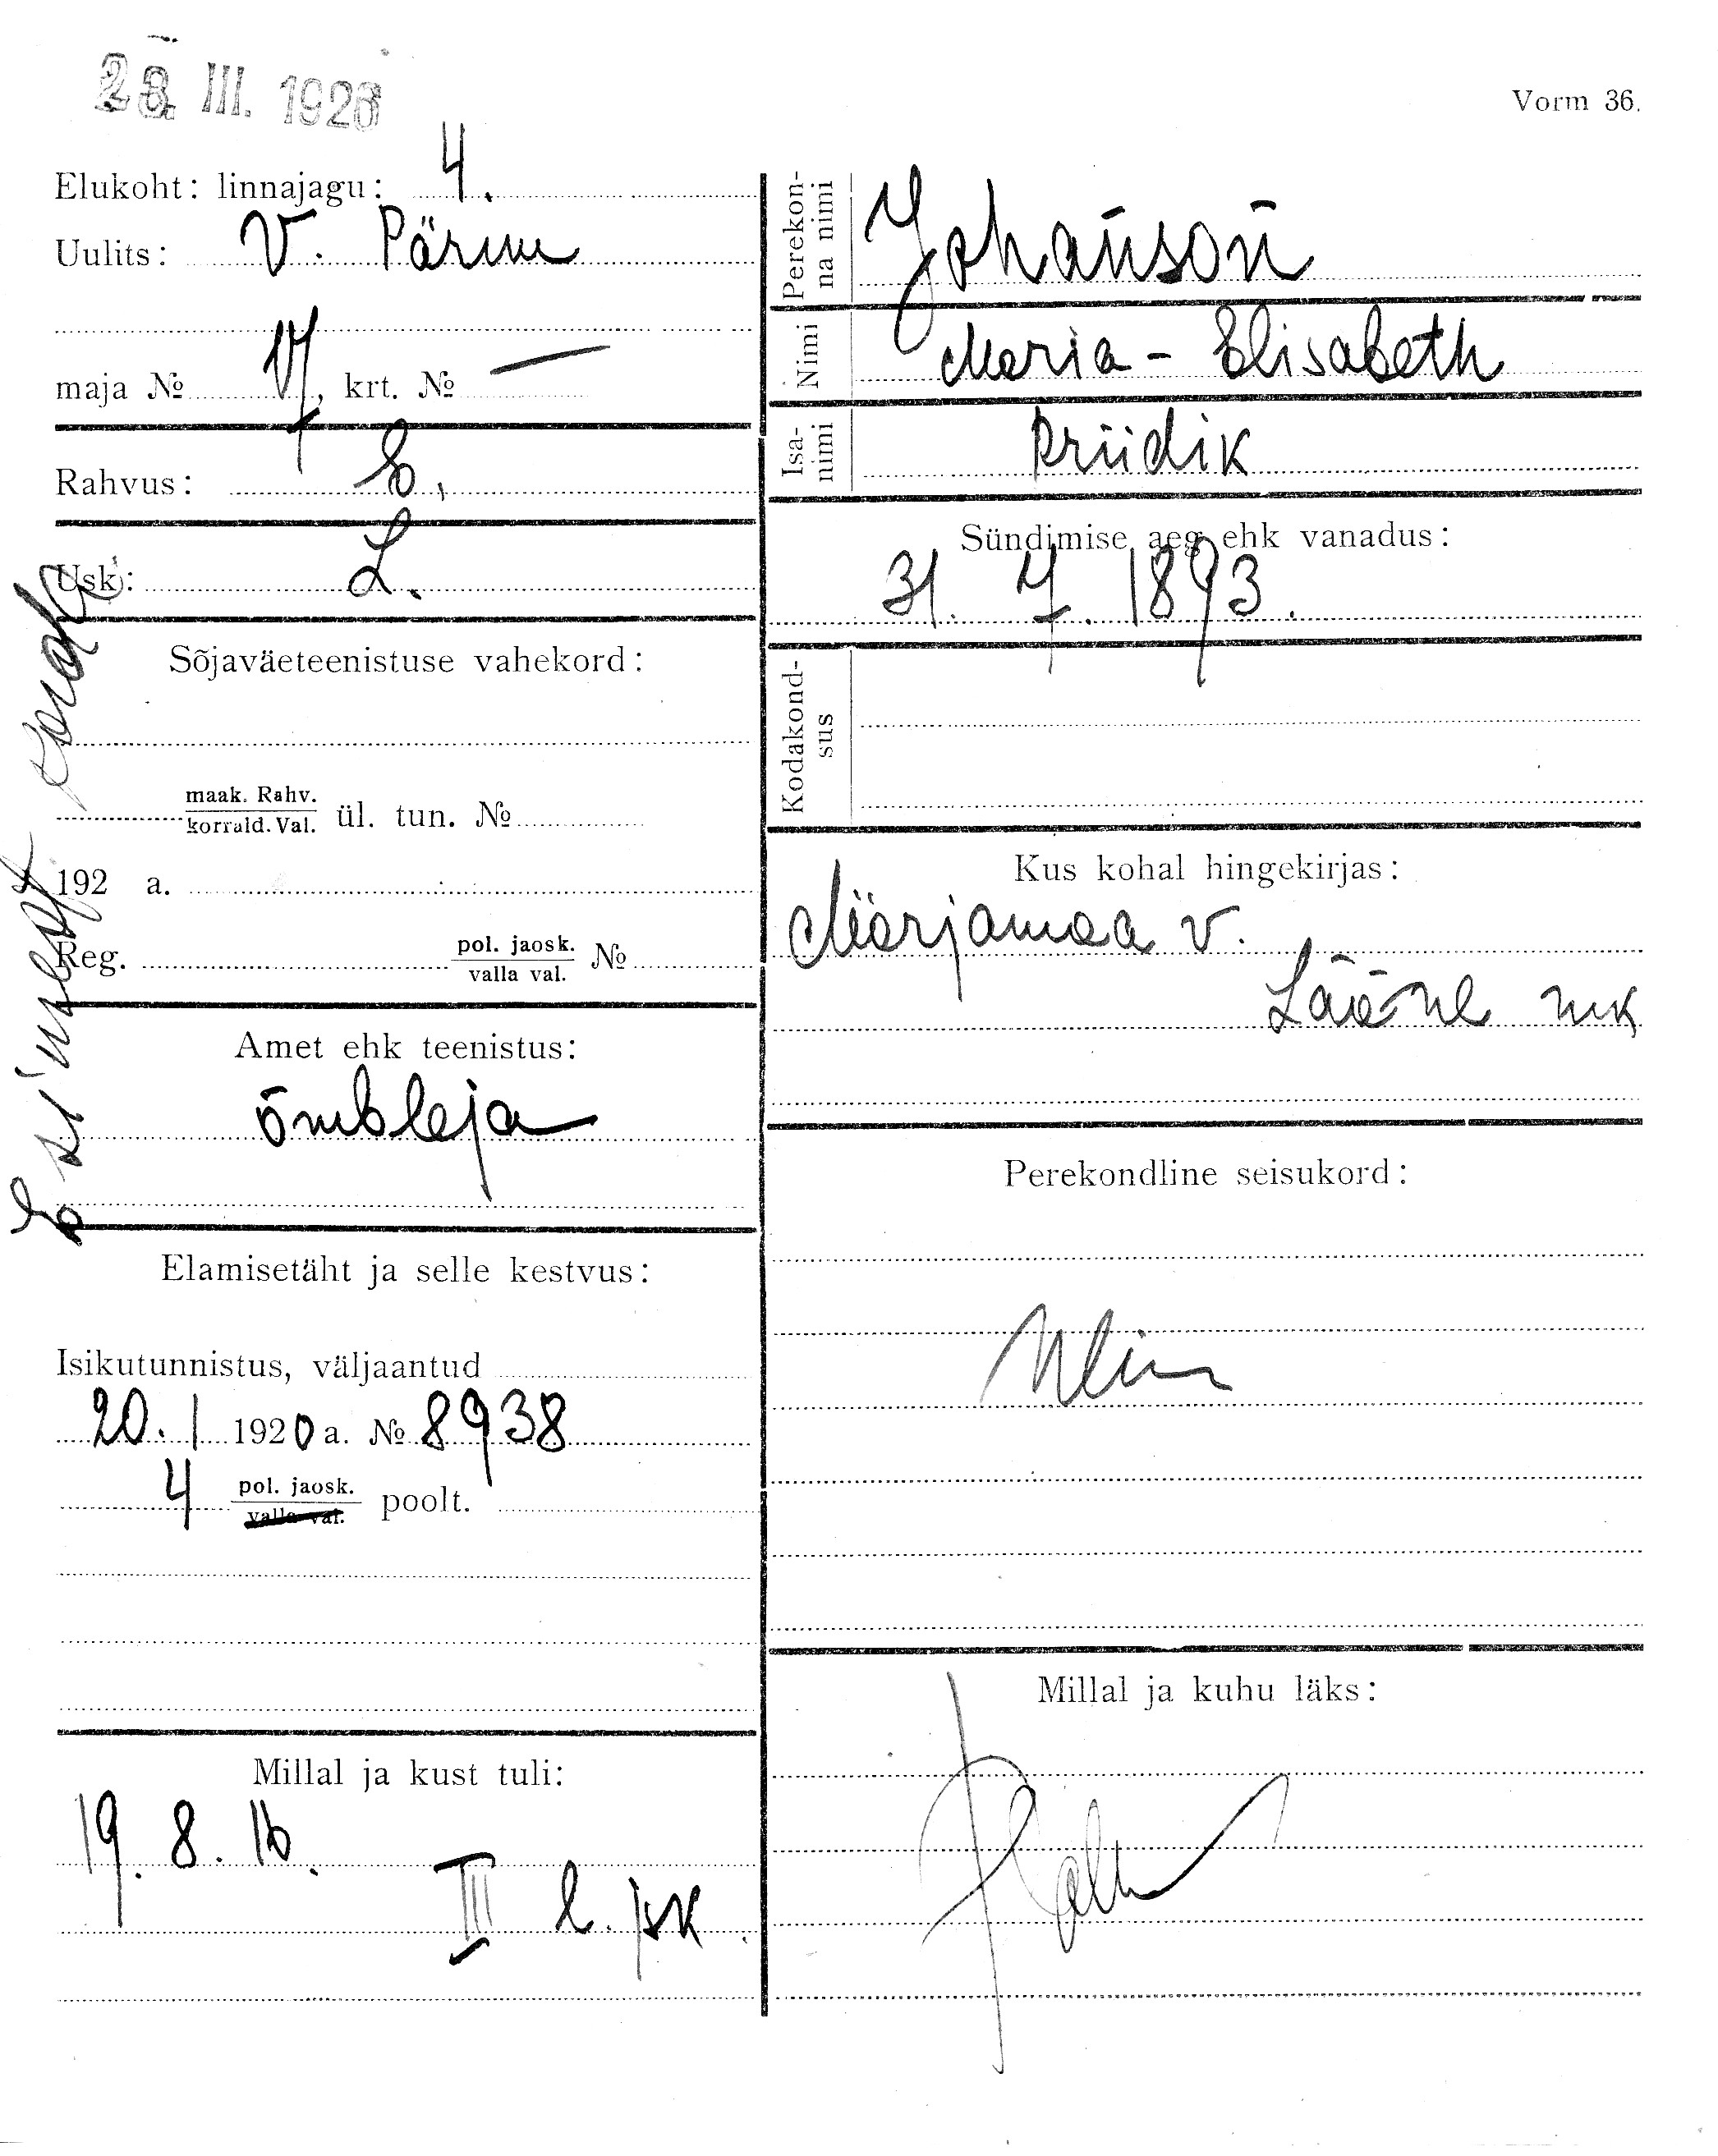 23. III. 1926
Vorm 36.
Elukoht: linnajagu: 4.
Uulits: V. Pärnu
maja № 17, krt. № —
Rahvus: E.
Usk: L.
Sõjaväeteenistuse vahekord:
maak. Rahv.
korrald. Val. ül. tun. №
192 a.
Reg. pol. jaosk. №
valla val.
Amet ehk teenistus:
õmbleja
Elamisetäht ja selle kestvus:
Isikutunnistus, väljaantud
20. I 1920 a. № 8938
4 pol. jaosk. poolt.
valla val.
Millal ja kust tuli:
19. 8. 16.
III l. jsk.
Esimest korda
Perekon-
na nimi Johanson
Nimi Maria - Elisabeth
Isa-
nimi Priidik
Sündimise aeg ehk vanadus:
31. 7. 1893.
Kodakond-
sus
Kus kohal hingekirjas:
Märjamaa v.
Lääne mk
Perekondline seisukord:
Millal ja kuhu läks: